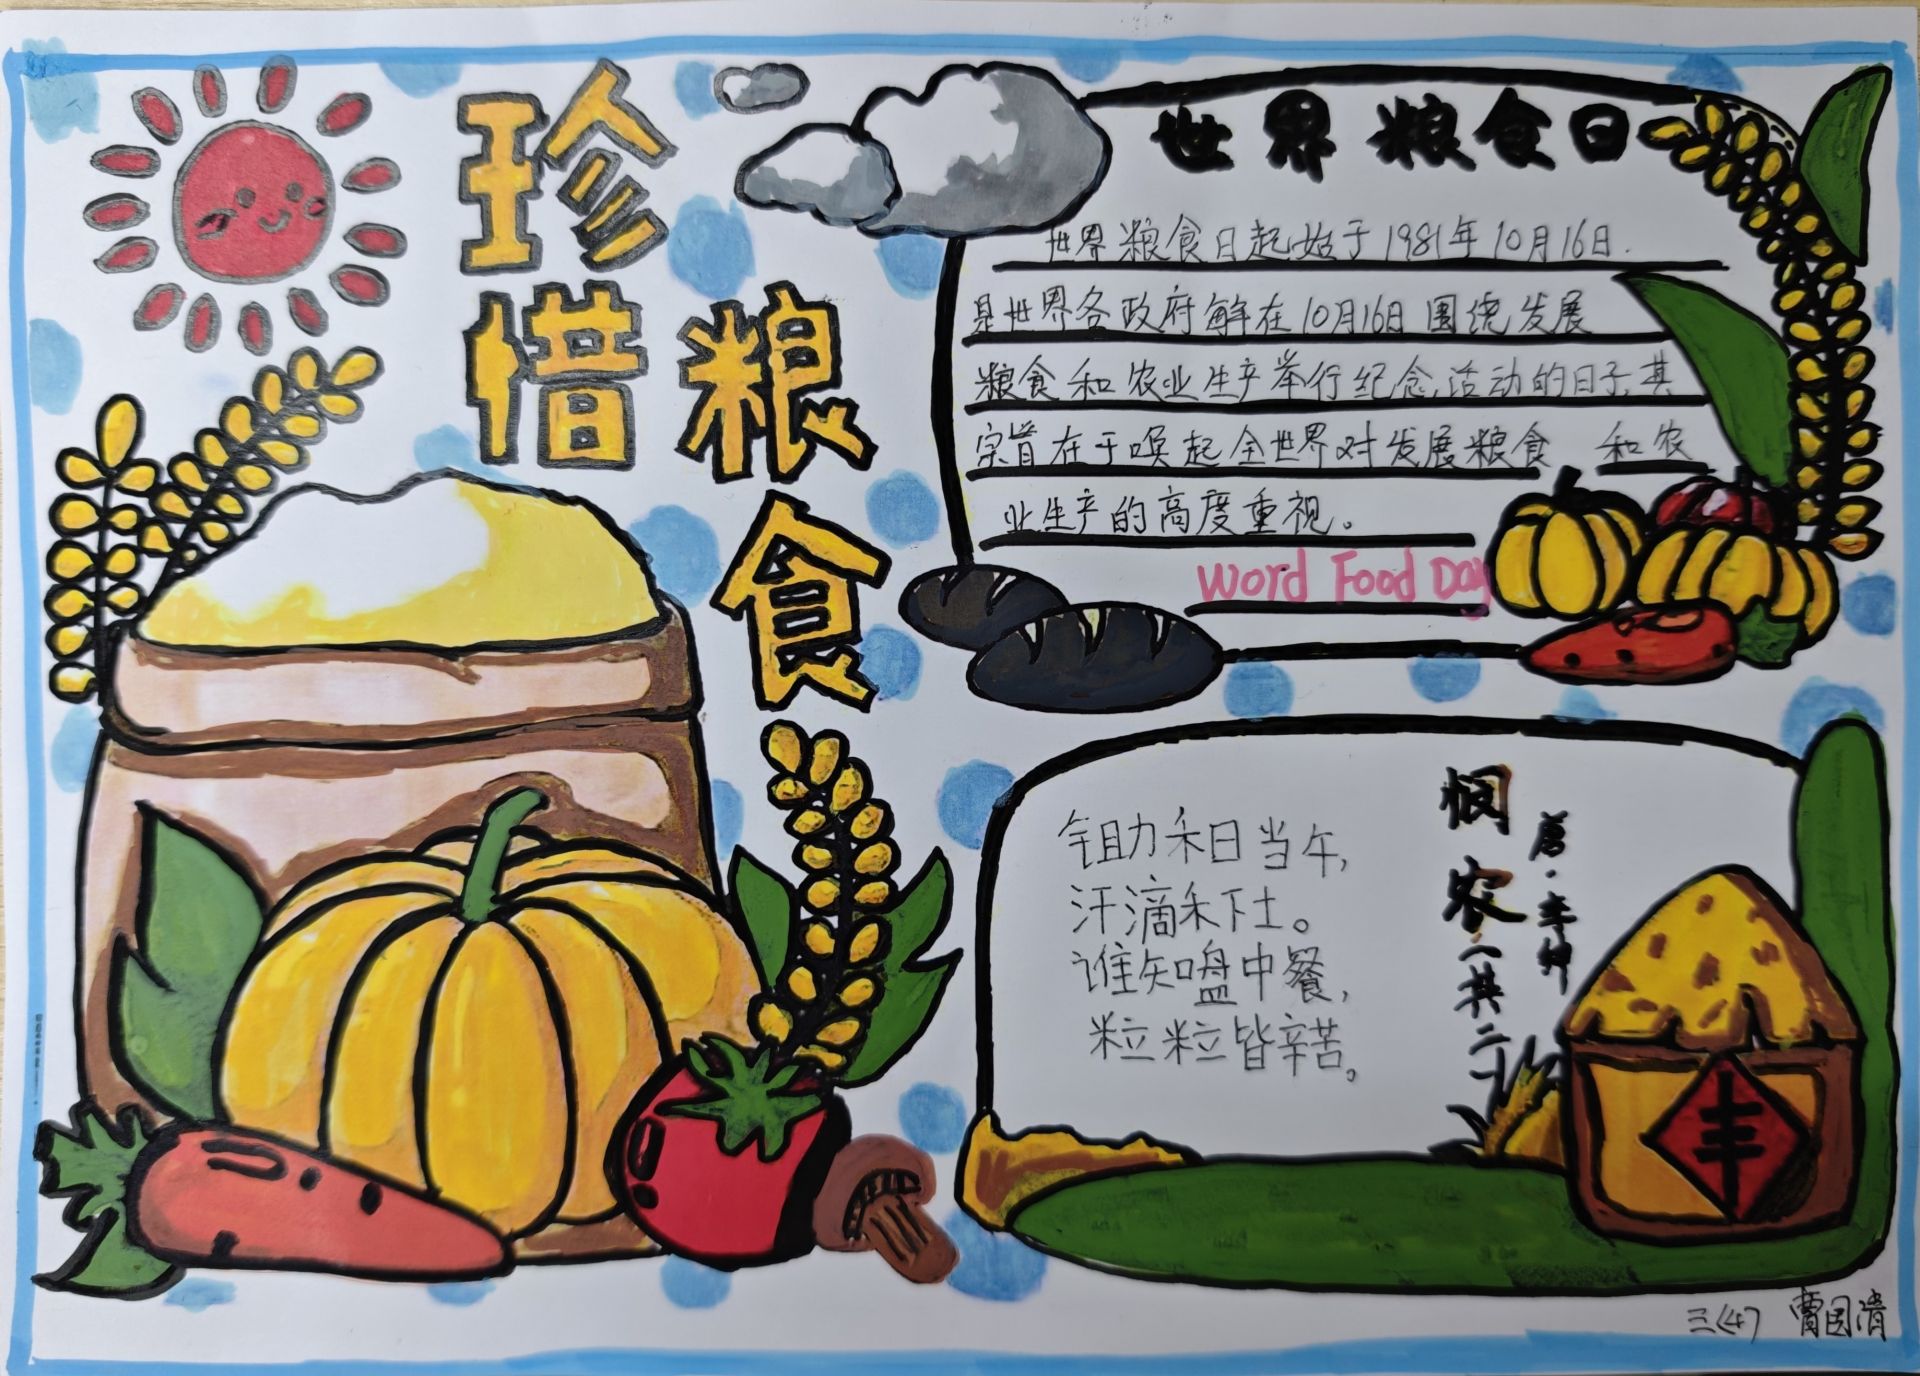 珍惜
粮食
世界粮食日
世界粮食日起始于1981年10月16日.
是世界各政府每年在10月16日围绕发展
粮食和农业生产举行纪念活动的日子,其
宗旨在于唤起全世界对发展粮食 和农
业生产的高度重视。
Word Food Day
悯农(其二)
唐·李绅
锄禾日当午,
汗滴禾下土。
谁知盘中餐,
粒粒皆辛苦。
丰
三(4)